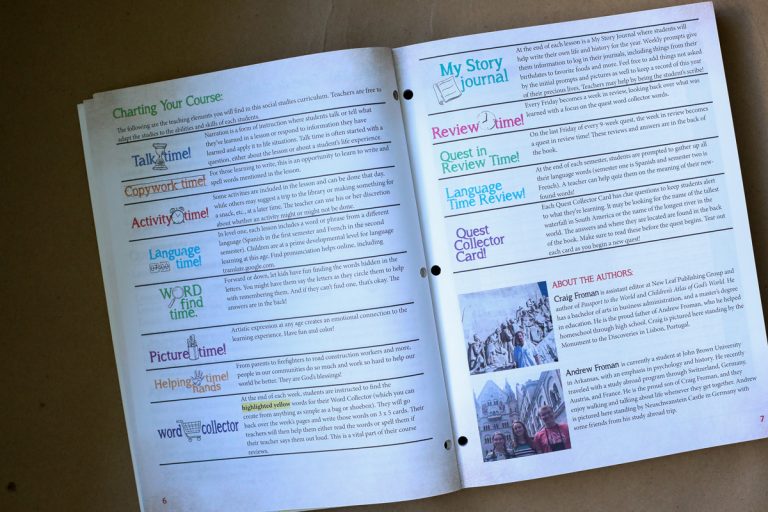 Charting Your Course:
The following are the teaching elements you will find in this social studies curriculum. Teachers are free to
adapt the studies to the abilities and skills of each students.
Talk time!
Narration is a form of instruction where students talk or tell what
they've learned in a lesson or respond to information they have
learned and apply it to life situations. Talk time is often started with a
question, either about the lesson or about a student's life experience.
Copywork time!
For those learning to write, this is an opportunity to learn to write and
spell words mentioned in the lesson.
Activity time!
Some activities are included in the lesson and can be done that day,
while others may suggest a trip to the library or making something for
a snack, etc., at a later time. The teacher can use his or her discretion
about whether an activity might or might not be done.
Language time!
In level one, each lesson includes a word or phrase from a different
language (Spanish in the first semester and French in the second
semester). Children are at a prime developmental level for language
learning at this age. Find pronunciation helps online, including
translate.google.com.
WORD
find
time.
Forward or down, let kids have fun finding the words hidden in the
letters. You might have them say the letters as they circle them to help
with remembering them. And if they can't find one, that's okay. The
answers are in the back!
Picture time!
Artistic expression at any age creates an emotional connection to the
learning experience. Have fun and color!
Helping hands time!
From parents to firefighters to road construction workers and more,
people in our communities do so much and work so hard to help our
world be better. They are God's blessings!
word collector
At the end of each week, students are instructed to find the
highlighted yellow words for their Word Collector (which you can
create from anything as simple as a bag or shoebox). They will go
back over the week's pages and write those words on 3 x 5 cards. Their
teachers will then help them either read the words or spell them if
their teacher says them out loud. This is a vital part of their course
reviews.
6
My Story
Journal
At the end of each lesson is a My Story Journal where students will
help write their own life and history for the year. Weekly prompts give
them information to log in their journals, including things from their
birthdates to favorite foods and more. Feel free to add things not asked
by the initial prompts and pictures as well to keep a record of this year
of their precious lives. Teachers may help by being the student's scribe!
Review time!
Every Friday becomes a week in review, looking back over what was
learned with a focus on the quest word collector words.
Quest in
Review Time!
On the last Friday of every 9-week quest, the week in review becomes
a quest in review time! These reviews and answers are in the back of
the book.
Language
Time Review!
At the end of each semester, students are prompted to gather up all
their language words (semester one is Spanish and semester two is
French). A teacher can help quiz them on the meaning of their new-
found words!
Quest
Collector
Card!
Each Quest Collector Card has clue questions to keep students alert
to what they're learning. It may be looking for the name of the tallest
waterfall in South America or the name of the longest river in the
world. The answers and where they are located are found in the back
of the book. Make sure to read these before the quest begins. Tear out
each card as you begin a new quest!
ABOUT THE AUTHORS:
Craig Froman is assistant editor at New Leaf Publishing Group and
author of Passport to the World and Children's Atlas of God's World. He
has a bachelor of arts in business administration, and a master's degree
in education. He is the proud father of Andrew Froman, who he helped
homeschool through high school. Craig is pictured here standing by the
Monument to the Discoveries in Lisbon, Portugal.
Andrew Froman is currently a student at John Brown University
in Arkansas, with an emphasis in psychology and history. He recently
traveled with a study abroad program through Switzerland, Germany,
Austria, and France. He is the proud son of Craig Froman, and they
enjoy walking and talking about life whenever they get together. Andrew
is pictured here standing by Neuschwanstein Castle in Germany with
some friends from his study abroad trip.
7